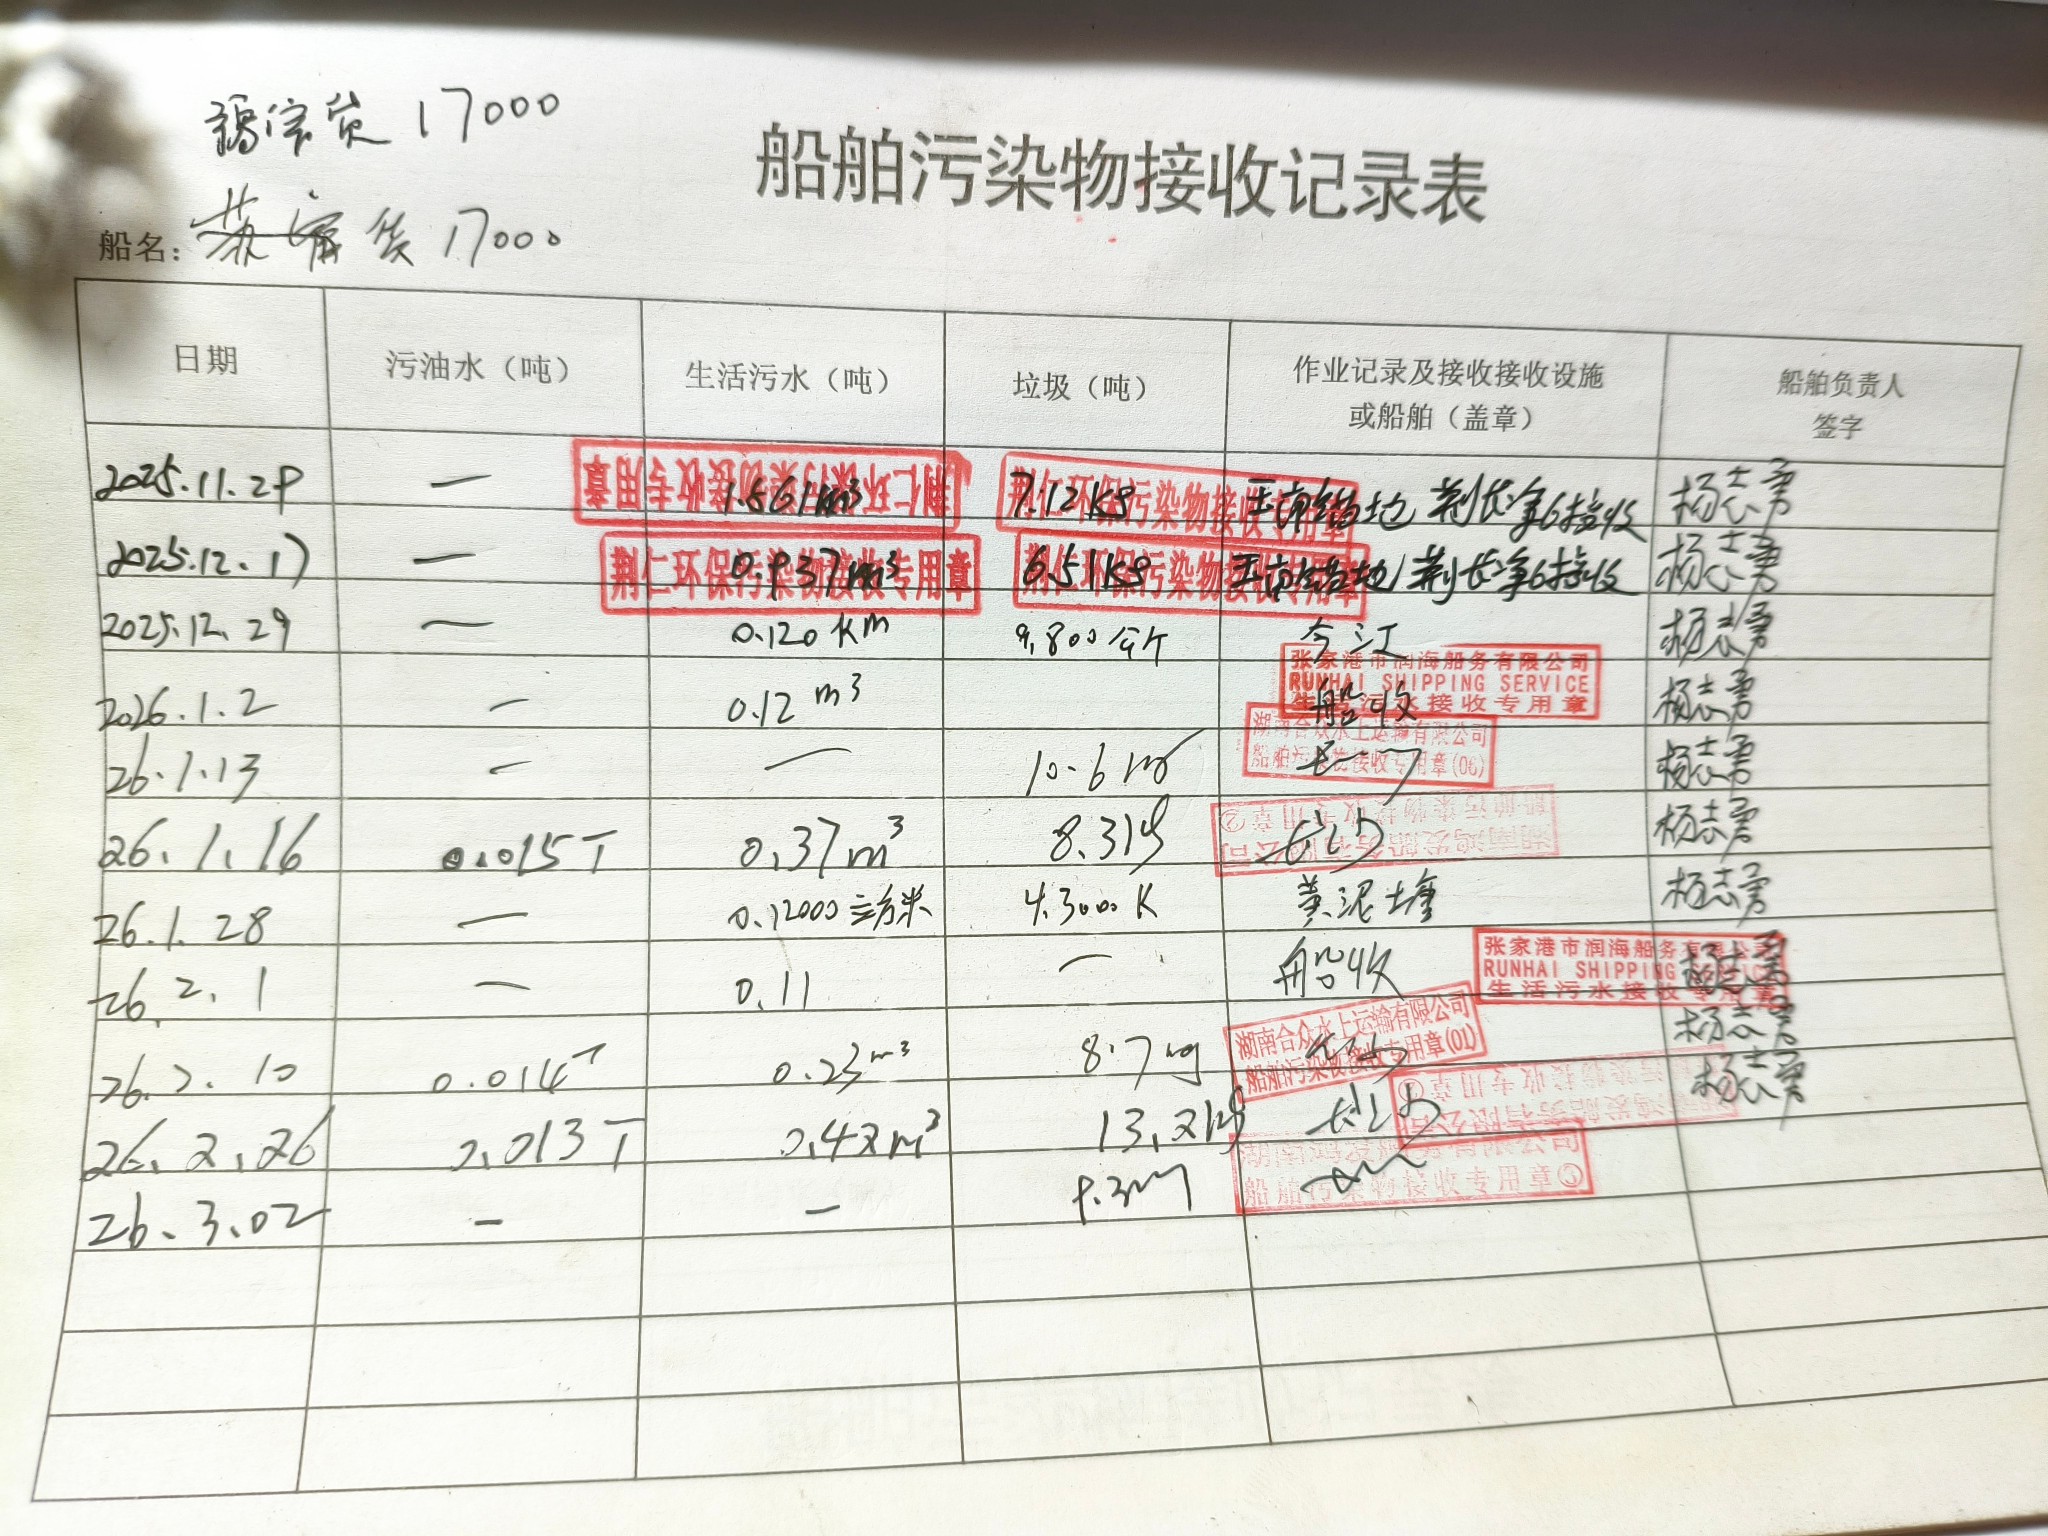 货 17000
船舶污染物接收记录表
船名: 货 17000
日期 污油水（吨） 生活污水（吨） 垃圾（吨） 作业记录及接收接收设施 或船舶（盖章） 船舶负责人 签字
2025.11.29 — 1.561m³ 7.12kg 锚地 接收 杨志勇
荆仁环保污染物接收专用章 荆仁环保污染物接收专用章
2025.12.17 — 0.937m³ 6.51kg 锚地 接收 杨志勇
荆仁环保污染物接收专用章 荆仁环保污染物接收专用章
2025.12.29 — 0.120 km 9.800公斤 杨志勇
张家港市润海船务有限公司
RUNHAI SHIPPING SERVICE
生活污水接收专用章
2026.1.2 — 0.12 m³ 船收 杨志勇
湖南合众水上运输有限公司
船舶污染物接收专用章(06)
26.1.13 — — 10.6 杨志勇
湖南鸿发船务有限公司
船舶污染物接收专用章②
26.1.16 0.015T 0.37m³ 8.31kg 长沙 杨志勇
26.1.28 — 0.12000立方米 4.3000K 黄泥塘 杨志勇
张家港市润海船务有限公司
RUNHAI SHIPPING SERVICE
生活污水接收专用章
26.2.1 — 0.11 — 船收 杨志勇
湖南合众水上运输有限公司
船舶污染物接收专用章(01)
26.2.10 0.014T 0.23m³ 8.7 长沙 杨志勇
26.2.26 0.013T 0.42m³ 13.21kg 长沙 杨志勇
湖南鸿发船务有限公司
船舶污染物接收专用章
26.3.02 — —